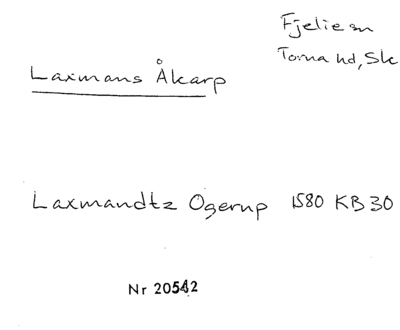 Fjelie sn
Torna hd, Sk
Laxmans Åkarp
Laxmandtz Ogerup 1580 KB 30
Nr 20542